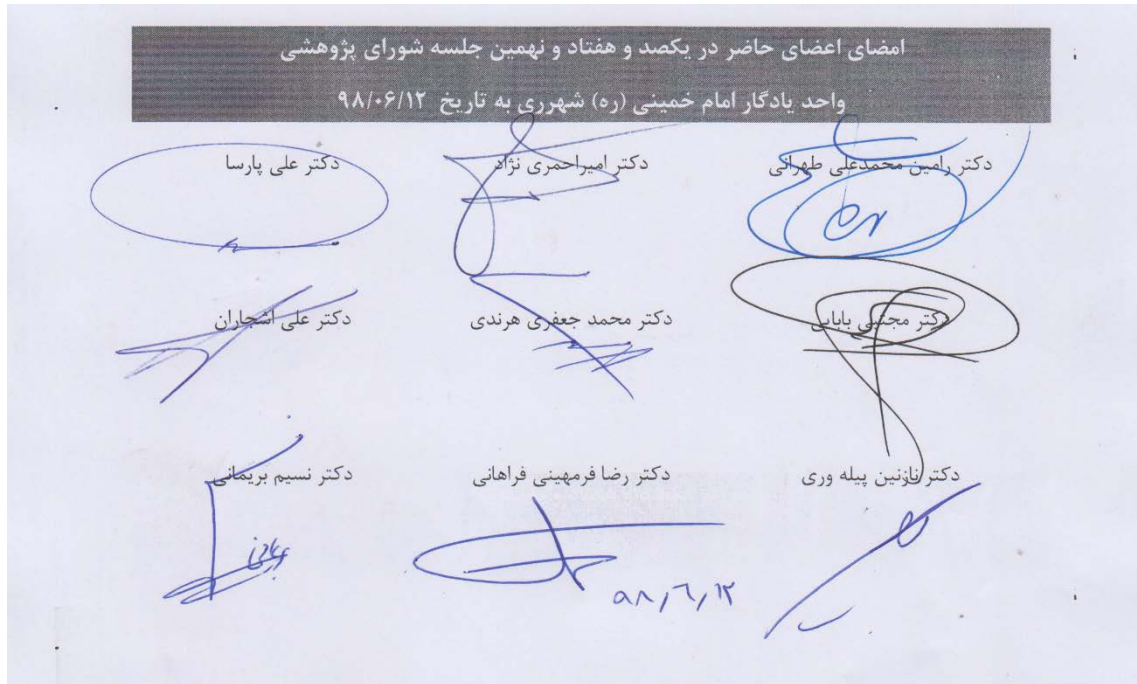 امضای اعضای حاضر در یکصد و هفتاد و نهمین جلسه شورای پژوهشی
واحد یادگار امام خمینی (ره) شهرری به تاریخ ۹۸/۰۶/۱۲
دکتر رامین محمدعلی طهرانی دکتر امیراحمری نژاد دکتر علی پارسا
دکتر مجتبی بابایی دکتر محمد جعفری هرندی دکتر علی اشجاران
دکتر نازنین پیله وری دکتر رضا فرمهینی فراهانی دکتر نسیم بریمانی
۹۸/۶/۱۲